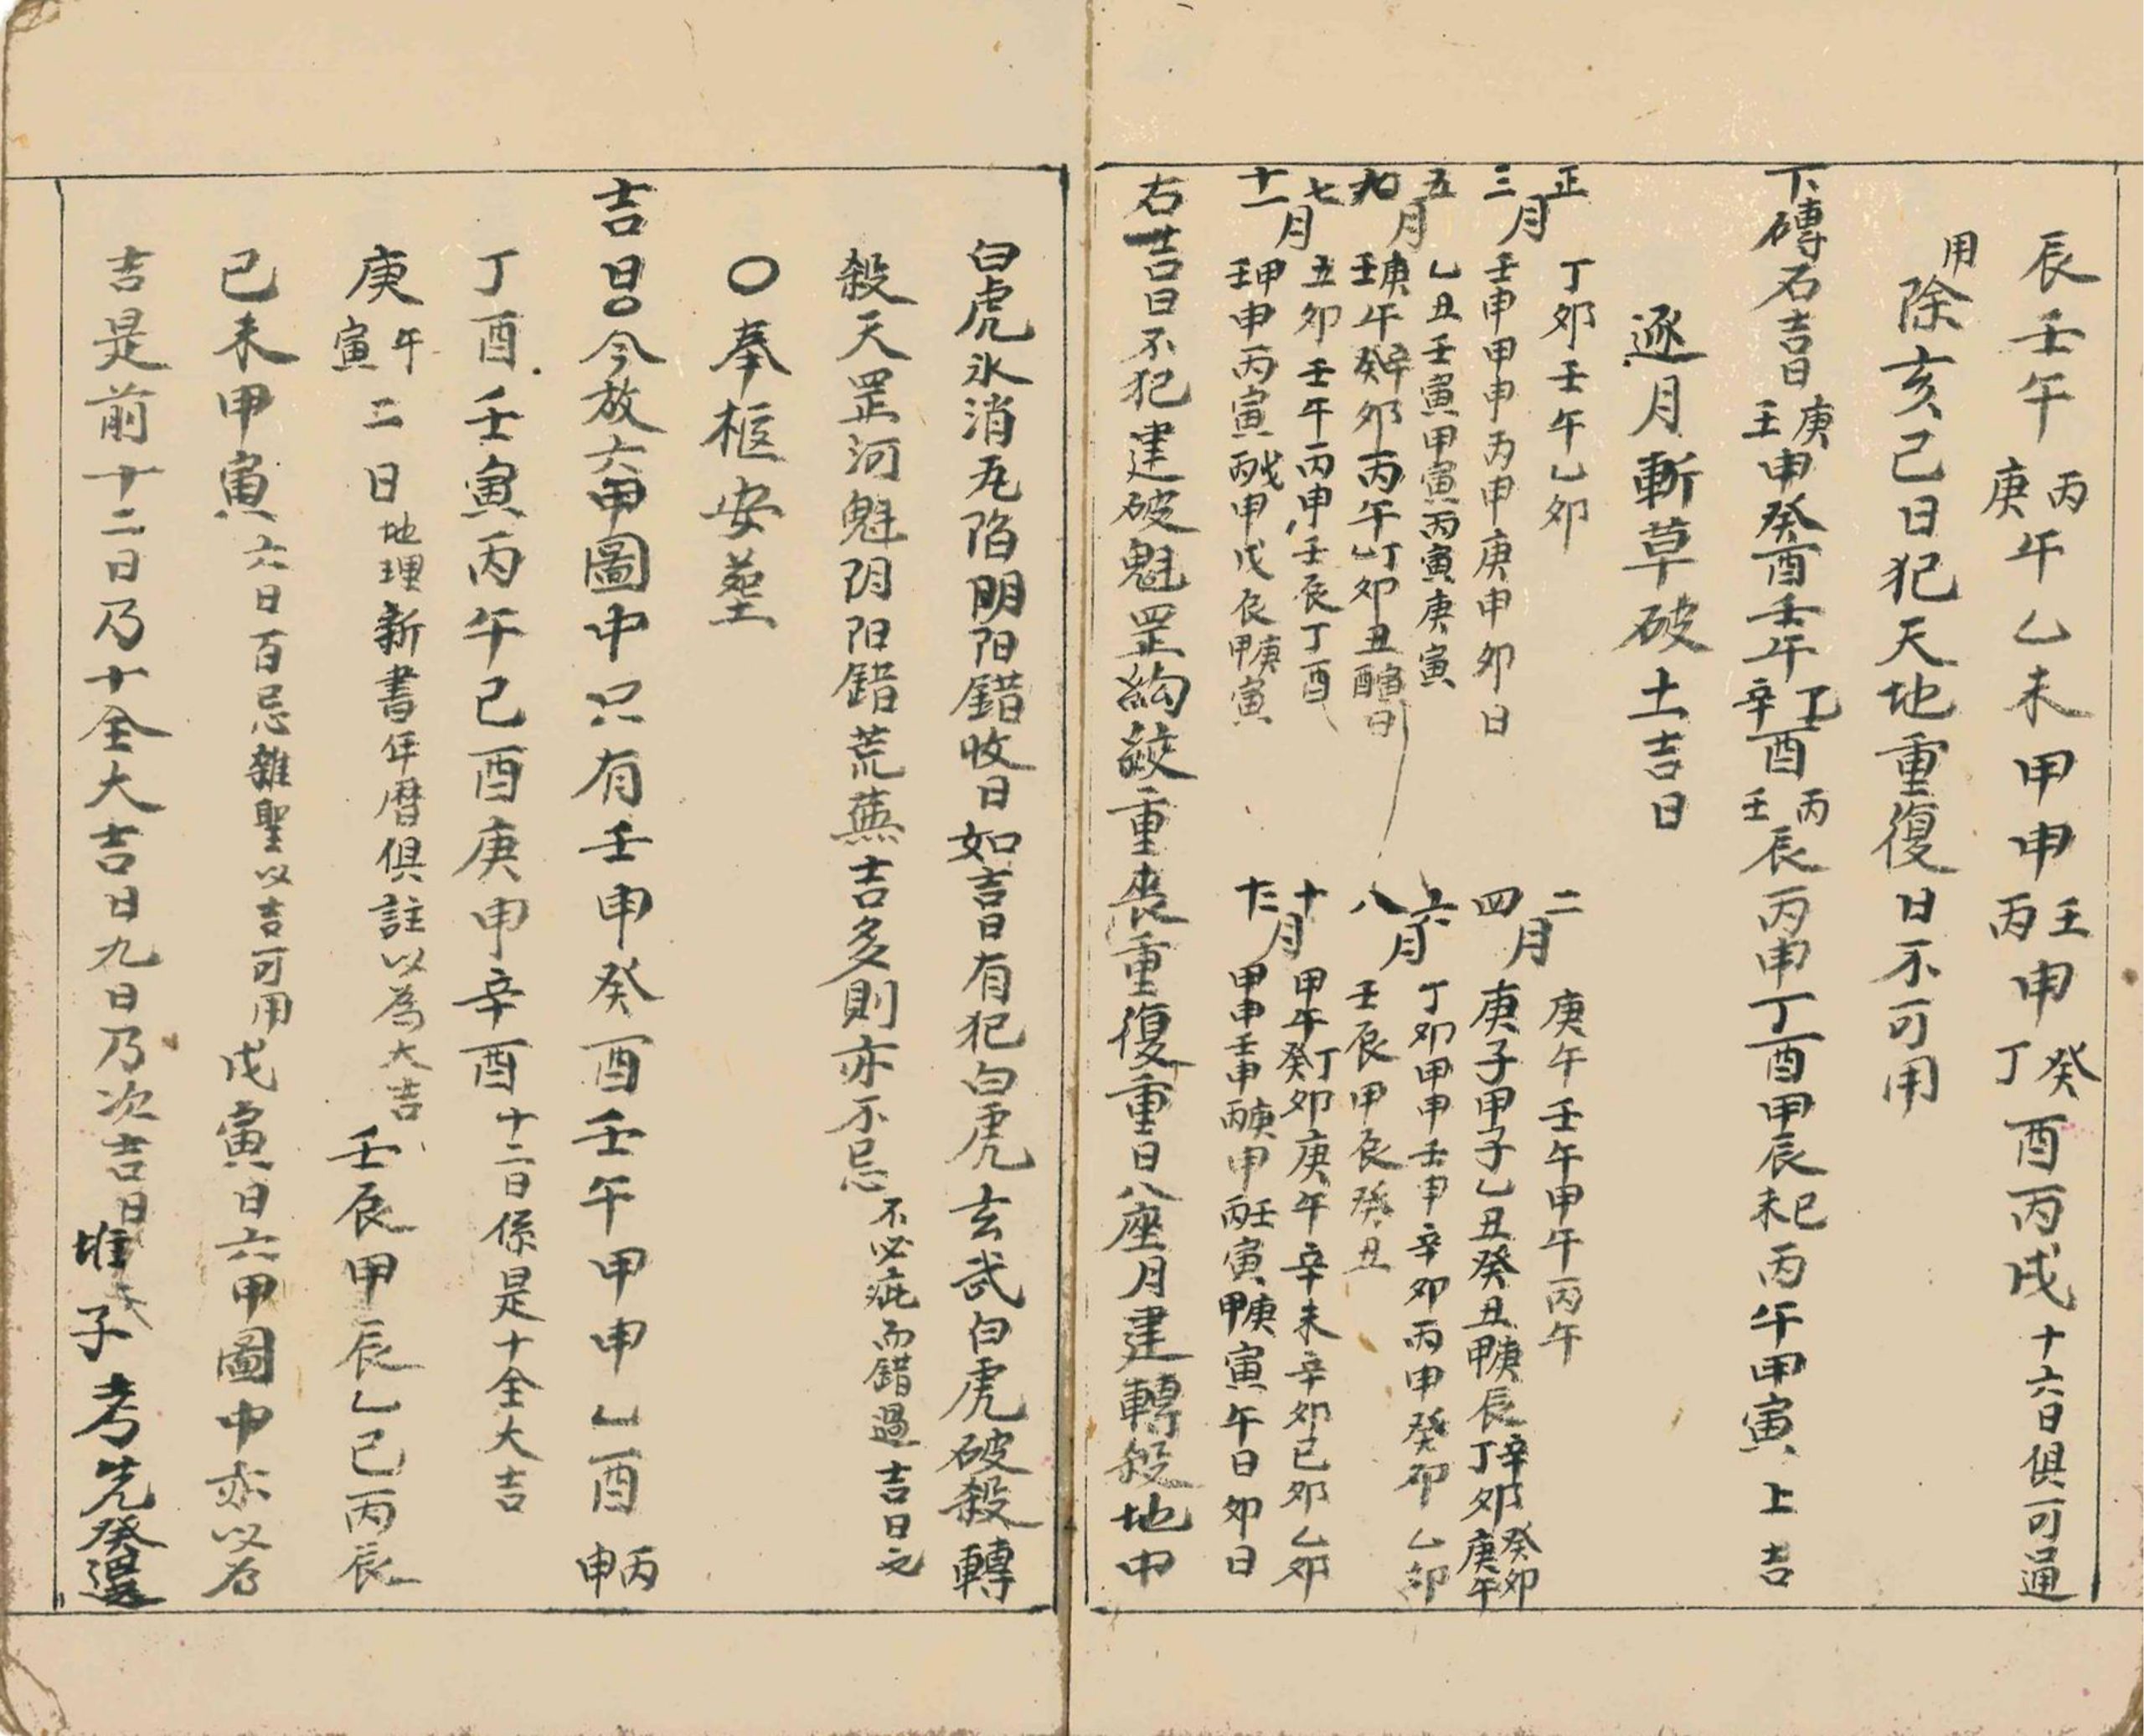 辰壬午丙庚午乙未甲申壬丙申癸丁酉丙戌十六日俱可通
用除亥己日犯天地重復日不可用
下磚石吉日庚壬申癸酉壬午辛酉丙壬辰丙申丁酉甲辰己未丙午甲寅上吉
逐月斬草破土吉日
正三月
丁卯壬午乙卯
壬申甲申丙申庚申卯日
五九月
乙丑壬寅甲寅丙寅庚寅
壬庚午癸辛卯丙午乙丁卯丑
七十一月
五卯壬午丙申壬辰丁酉
壬甲申丙寅丙戌甲戊辰甲庚寅
二四月
庚午壬午甲午丙午
庚子甲子乙丑癸丑甲庚辰丁辛卯癸卯庚午
六八月
丁卯甲申壬申辛卯丙申癸卯乙卯
壬辰甲辰癸丑
十十二月
甲午癸丁卯庚午辛未辛卯己卯乙卯
甲申壬申丙庚申丙壬寅甲庚寅午日卯日
右吉日不犯建破魁罡絇絞重喪重復重日八座月建轉殺地中
白虎氷消瓦陷明阳錯收日如吉日有犯白虎玄武白虎破殺轉
殺天罡河魁阴阳錯荒蕪吉多則亦不忌不必疵而錯過吉日也
〇奉柩安塟
吉日〇今放六甲圖中只有壬申癸酉壬午甲申乙酉丙申
丁酉壬寅丙午己酉庚申辛酉十二日係是十全大吉
庚午寅二日地理新書年曆俱註以為大吉壬辰甲辰乙巳丙辰
己未甲寅六日百忌雜聖以吉可用戊寅日六甲圖中亦以为
吉是前十二日乃十全大吉日九日乃次吉日
子考先癸選